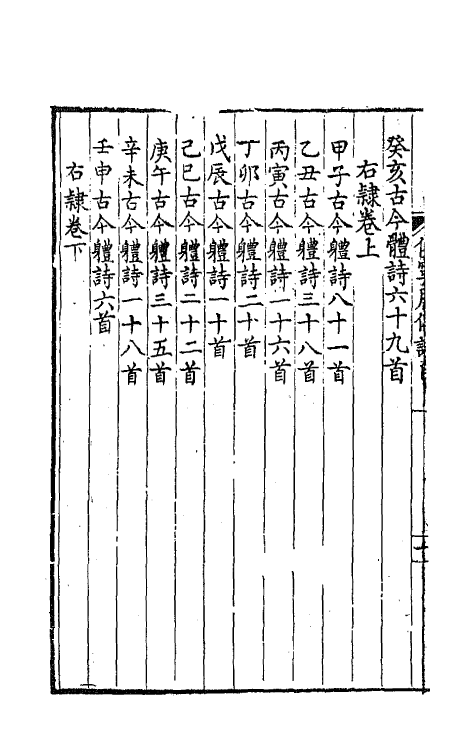 癸亥古今體詩六十九首
右隸卷上
甲子古今軆詩八十一首
乙丑古今軆詩三十八首
丙寅古今軆詩一十六首
丁卯古今軆詩二十首
戊辰古今軆詩一十首
己巳古今軆詩二十二首
庚午古今軆詩三十五首
辛未古今軆詩一十八首
壬申古今軆詩六首
右隸卷下